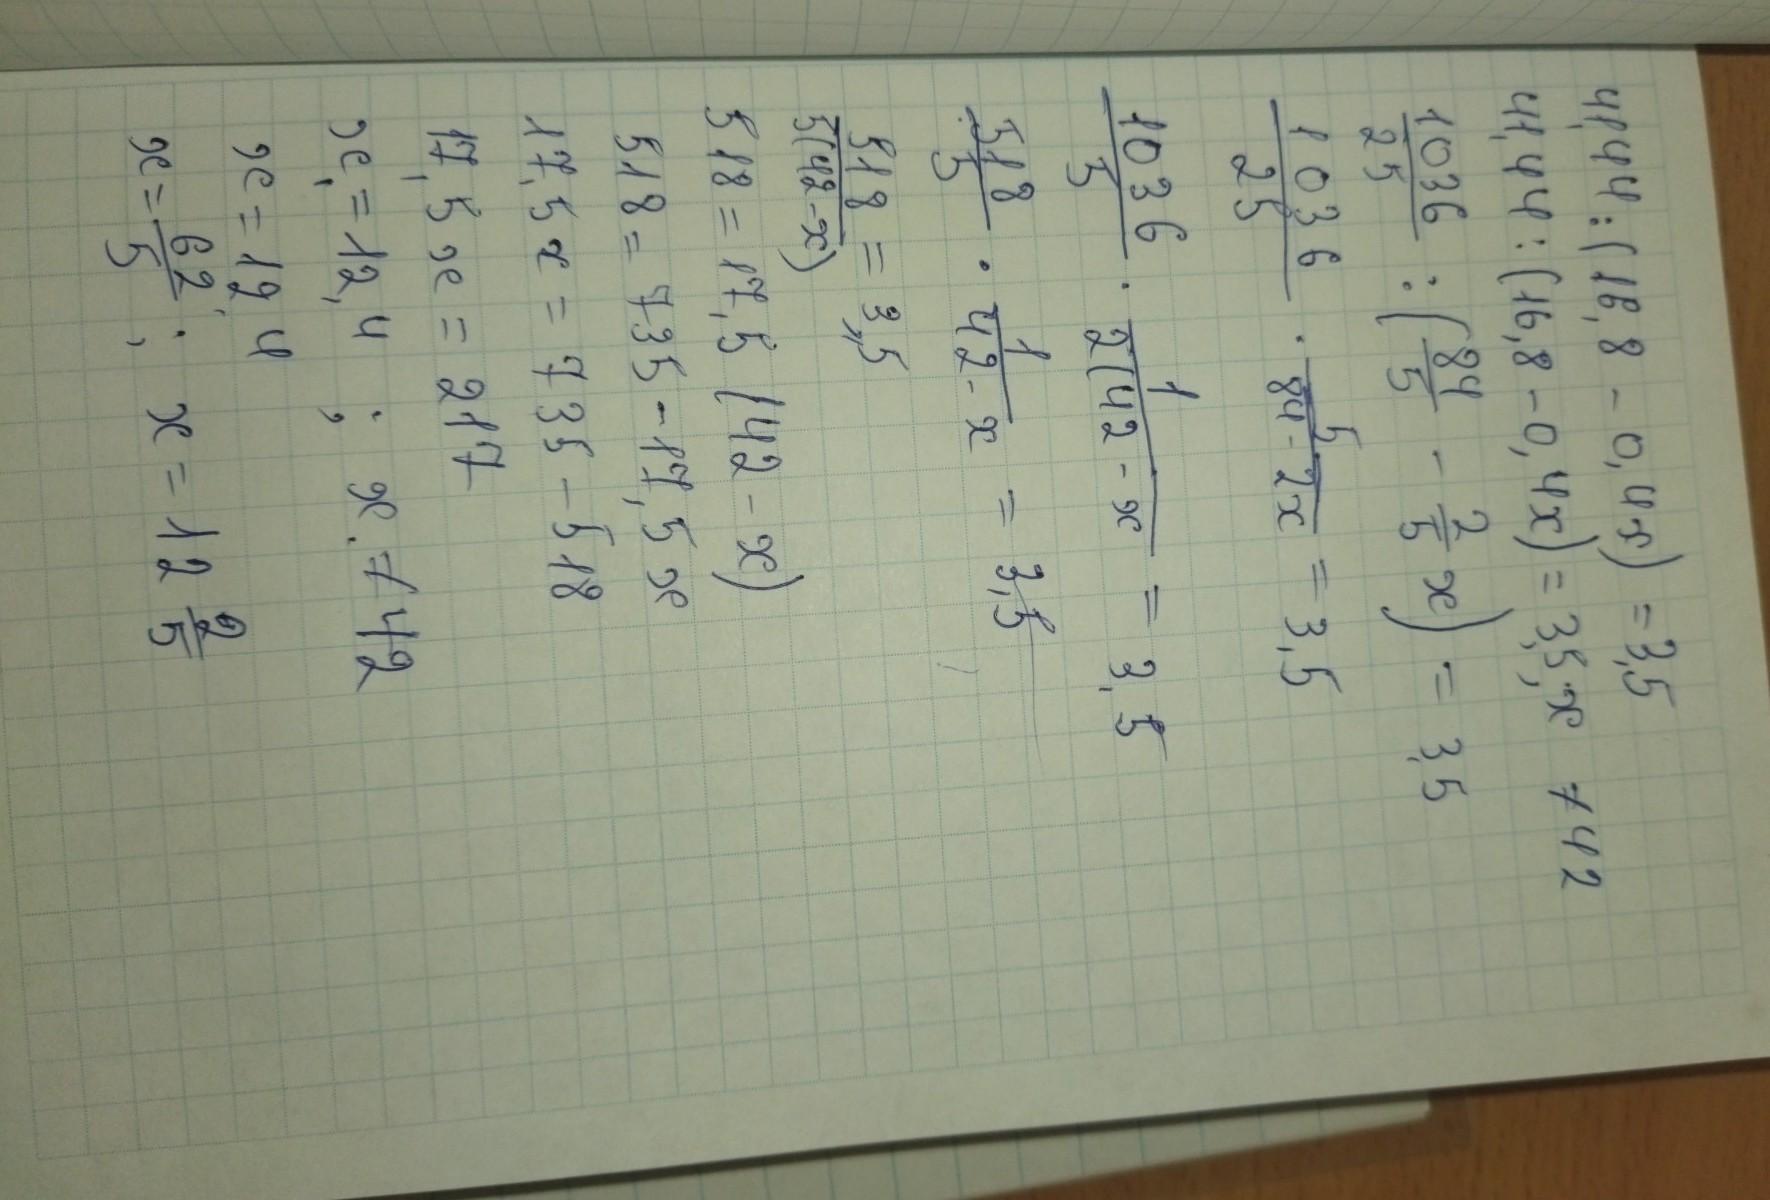 41,44 : (16,8 - 0,4x) = 3,5
41,44 : (16,8 - 0,4x) = 3,5, x ≠ 42
1036/25 : (84/5 - 2/5 x) = 3,5
1036/25 · 5/(84 - 2x) = 3,5
1036/5 · 1/(2(42 - x)) = 3,5
518/5 · 1/(42 - x) = 3,5
518/(5(42 - x)) = 3,5
518 = 17,5 (42 - x)
518 = 735 - 17,5x
17,5x = 735 - 518
17,5x = 217
x = 12,4 ; x ≠ 42
x = 12,4
x = 62/5 ; x = 12 2/5